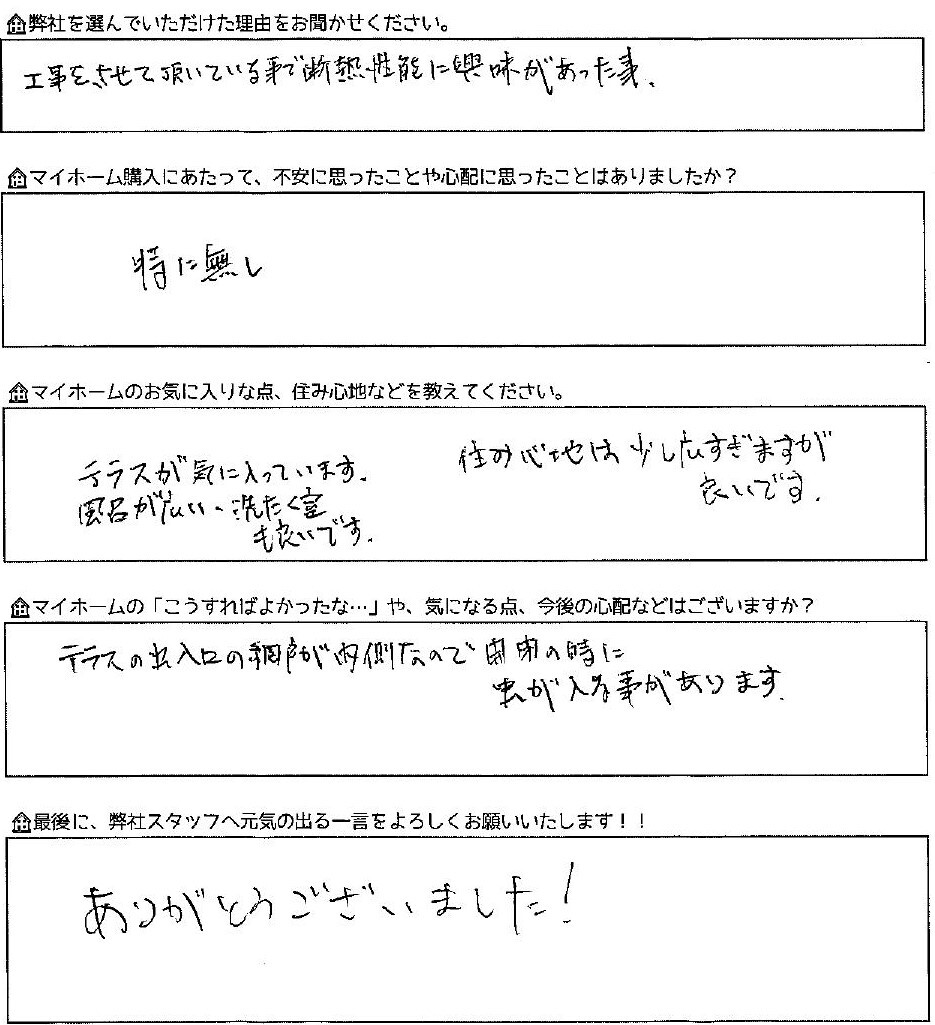 弊社を選んでいただけた理由をお聞かせください。
工事をさせて頂いている事で断熱性能に興味があった事、
マイホーム購入にあたって、不安に思ったことや心配に思ったことはありましたか？
特に無し
マイホームのお気に入りな点、住み心地などを教えてください。
テラスが気に入っています。
風呂が広い、洗たく室
も良いです。
住み心地は少し広すぎますが
良いです。
マイホームの「こうすればよかったな…」や、気になる点、今後の心配などはございますか？
テラスの出入口の網戸が内側なので開閉の時に
虫が入る事があります。
最後に、弊社スタッフへ元気の出る一言をよろしくお願いいたします！！
ありがとうございました！